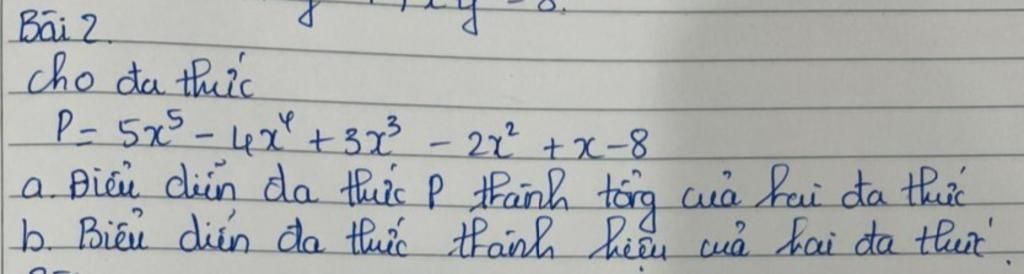 Bài 2.
Cho đa thức
P = 5x⁵ - 4x⁴ + 3x³ - 2x² + x - 8
a. Biểu diễn đa thức P thành tổng của hai đa thức
b. Biểu diễn đa thức thành hiệu của hai đa thức.